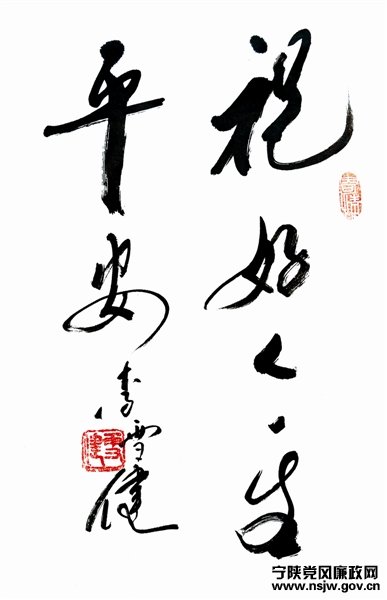 祝好人一生
平安
李雪健
宁陕党风廉政网
www.nsjw.gov.cn